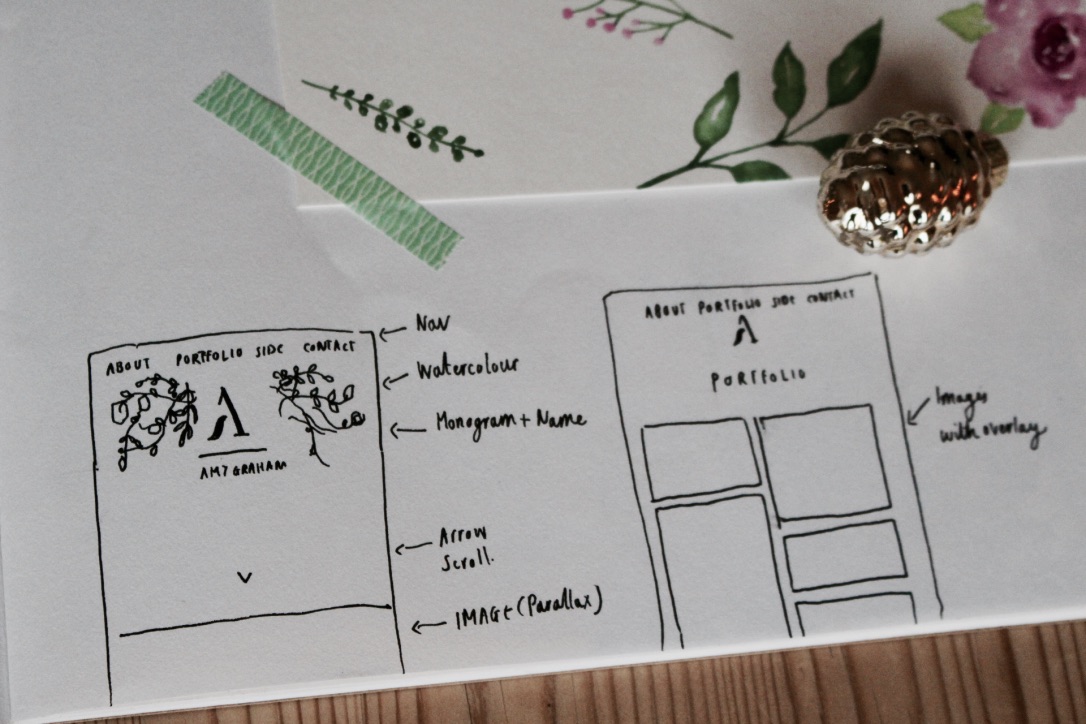 ABOUT PORTFOLIO SIDE CONTACT
A
AMY GRAHAM
Nav
Watercolour
Monogram + Name
Arrow
Scroll.
IMAGE (Parallax)
ABOUT PORTFOLIO SIDE CONTACT
A
PORTFOLIO
Images
with overlay